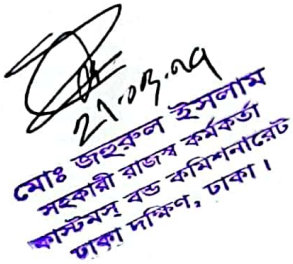 ২১.০৩.২৭
মোঃ জহুরুল ইসলাম
সহকারী রাজস্ব কর্মকর্তা
কাস্টমস্ বন্ড কমিশনারেট
ঢাকা দক্ষিণ, ঢাকা।